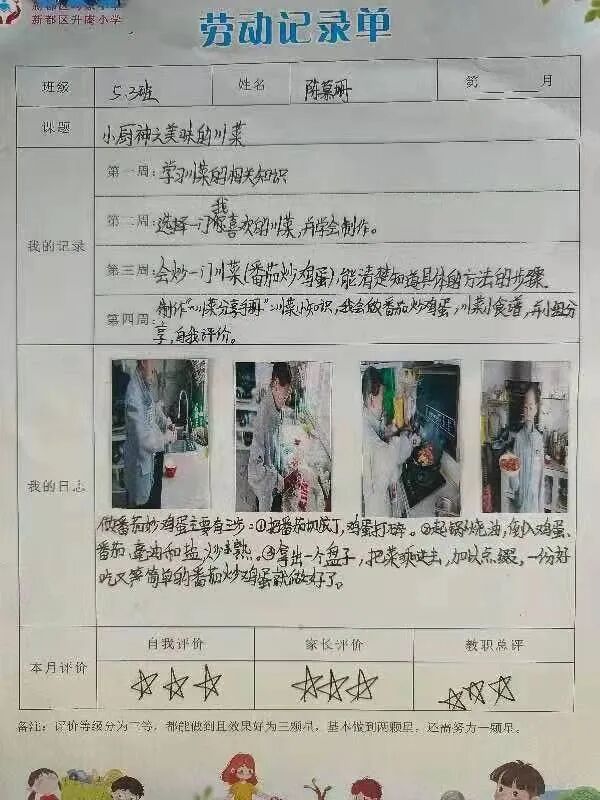 新都区升庵小学
劳动记录单
班级 5.3班 姓名 陈慕珊 第 月
课题 小厨神之美味的川菜
我的记录
第一周：学习川菜的相关知识
第二周：选择一门我喜欢的川菜，并学会制作。
第三周：会炒一门川菜(番茄炒鸡蛋)，能清楚知道具体的方法的步骤。
第四周：制作“川菜分享手册”川菜小知识，我会做番茄炒鸡蛋，川菜小食谱，并小组分
享，自我评价。
我的日志
做番茄炒鸡蛋主要有三步：①把番茄切成丁，鸡蛋打碎。②起锅烧油，倒入鸡蛋、
番茄、油和盐，炒熟。③拿出一个盘子，把菜，加以点缀，一份好
吃又简单的番茄炒鸡蛋就做好了。
本月评价
自我评价 家长评价 教职总评
备注：评价等级分为三等，都能做到且效果好为三颗星，基本做到两颗星，还需努力一颗星。